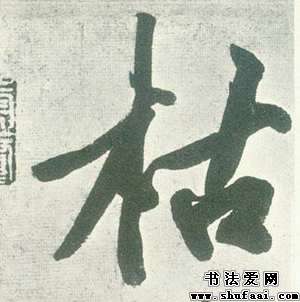 枯
书法爱网
www.shufaai.com